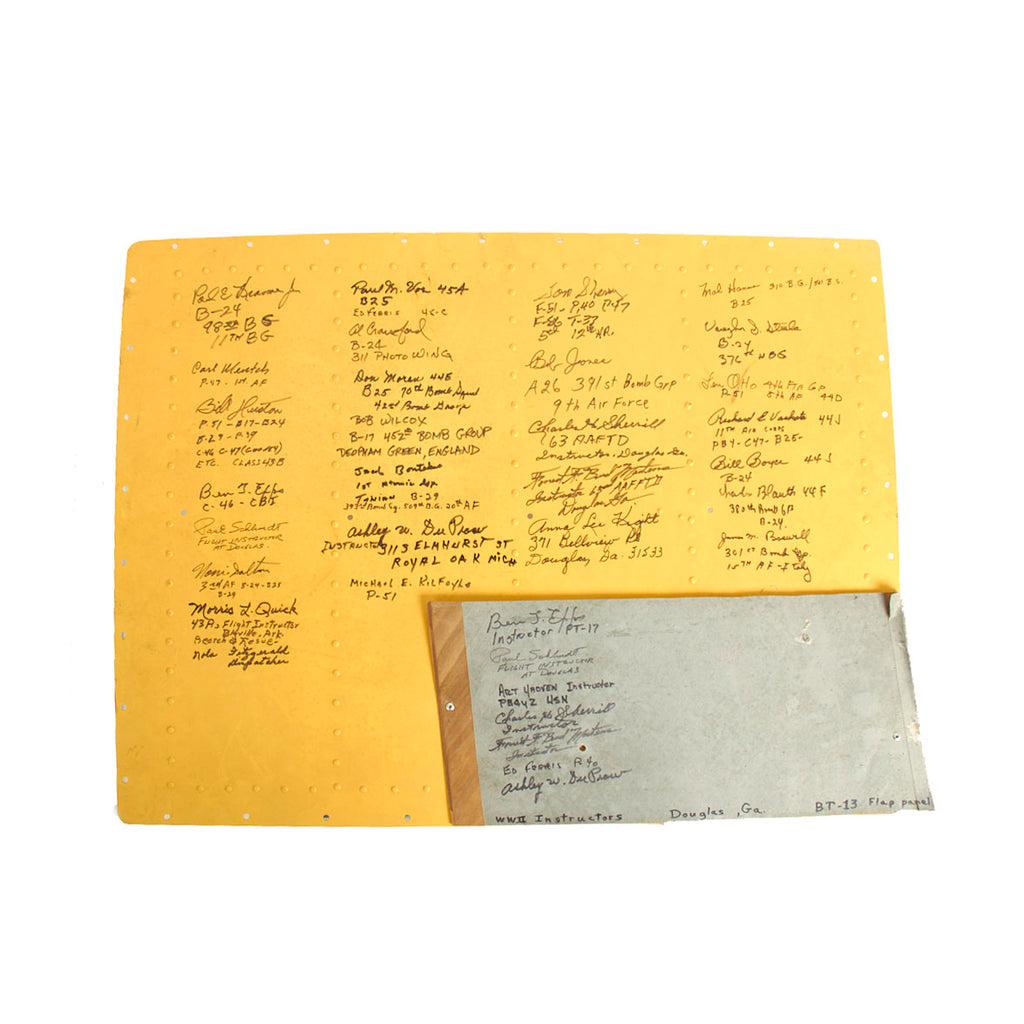 Paul E.
B-24
98th BG
11TH BG
Carl
P-47 - 1st AF
Bill Huston
P-51 - B-17 - B24
B-29 - P-39
C-46 C-47
ETC. CLASS 43B
Ben T. Epps
C-46 - CBI
Paul Schmidt
FLIGHT INSTRUCTOR
AT DOUGLAS.
Dalton
3rd AF B-24 - B25
B-29
Morris L. Quick
43A, Flight Instructor
Ark.
Search &
Nola Fitzgerald
dispatcher
Paul M. 45A
B25
ED FERRIS 45-C
Al Crawford
B-24
311 PHOTO WING
Don Moran 44E
B25 70th Bomb Squad
42nd Bomb Group
BOB WILCOX
B-17 452nd BOMB GROUP
DEOPHAM GREEN, ENGLAND
Jack
1st
Tinian B-29
393rd Bomb Sq. 509th B.G. 20th AF
Ashley W. Du Praw
INSTRUCTOR 3113 ELMHURST ST
ROYAL OAK MICH
MICHAEL E. KILFOYLE
P-51
Tom
F-51 - P.40 P-47
F-86 T-37
5th 12th AR.
Bob Jones
A26 391st Bomb Grp
9th Air Force
Charles H. Sherrill
63 AAFTD
Instructor. Douglas Ga.
Forrest F. "Bud"
Instructor 63rd AAFFTD
Douglas Ga
Anna Lee Knight
371 Bellview Rd
Douglas, Ga. 31533
Mal 310 B.G./
B25
Vaughn D. Steele
B-24
376th HBG
Len Otto 446 Ftr Gp
P-51 8th AF 44D
Richard E. 44J
11TH AIR CORPS
PB4 - C47 - B25 -
Bill Boyer 44J
B-24
Charles Blauth 44F
380th Bomb GP
B-24.
James M.
301st Bomb Gp.
15TH AF - Italy
Ben T. Epps
Instructor / PT-17
Paul Schmidt
FLIGHT INSTRUCTOR
AT DOUGLAS
ART Instructor
PB4Y2 USN
Charles H. Sherrill
Instructor
Forrest F. "Bud"
Instructor
ED FERRIS P40
Ashley W. Du Praw
WWII Instructors Douglas, Ga. BT-13 Flap panel